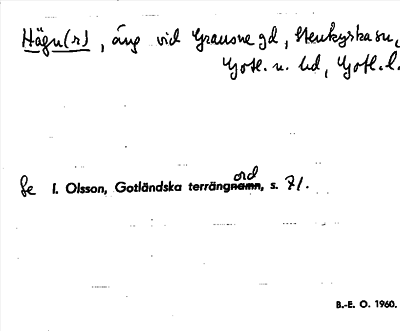 Hägn(r), äng vid Grausne gd, Stenkyrka sn,
Gotl. n. hd, Gotl. l.
Se I. Olsson, Gotländska terrängnamn, s. 71.
ord
B.-E. O. 1960.